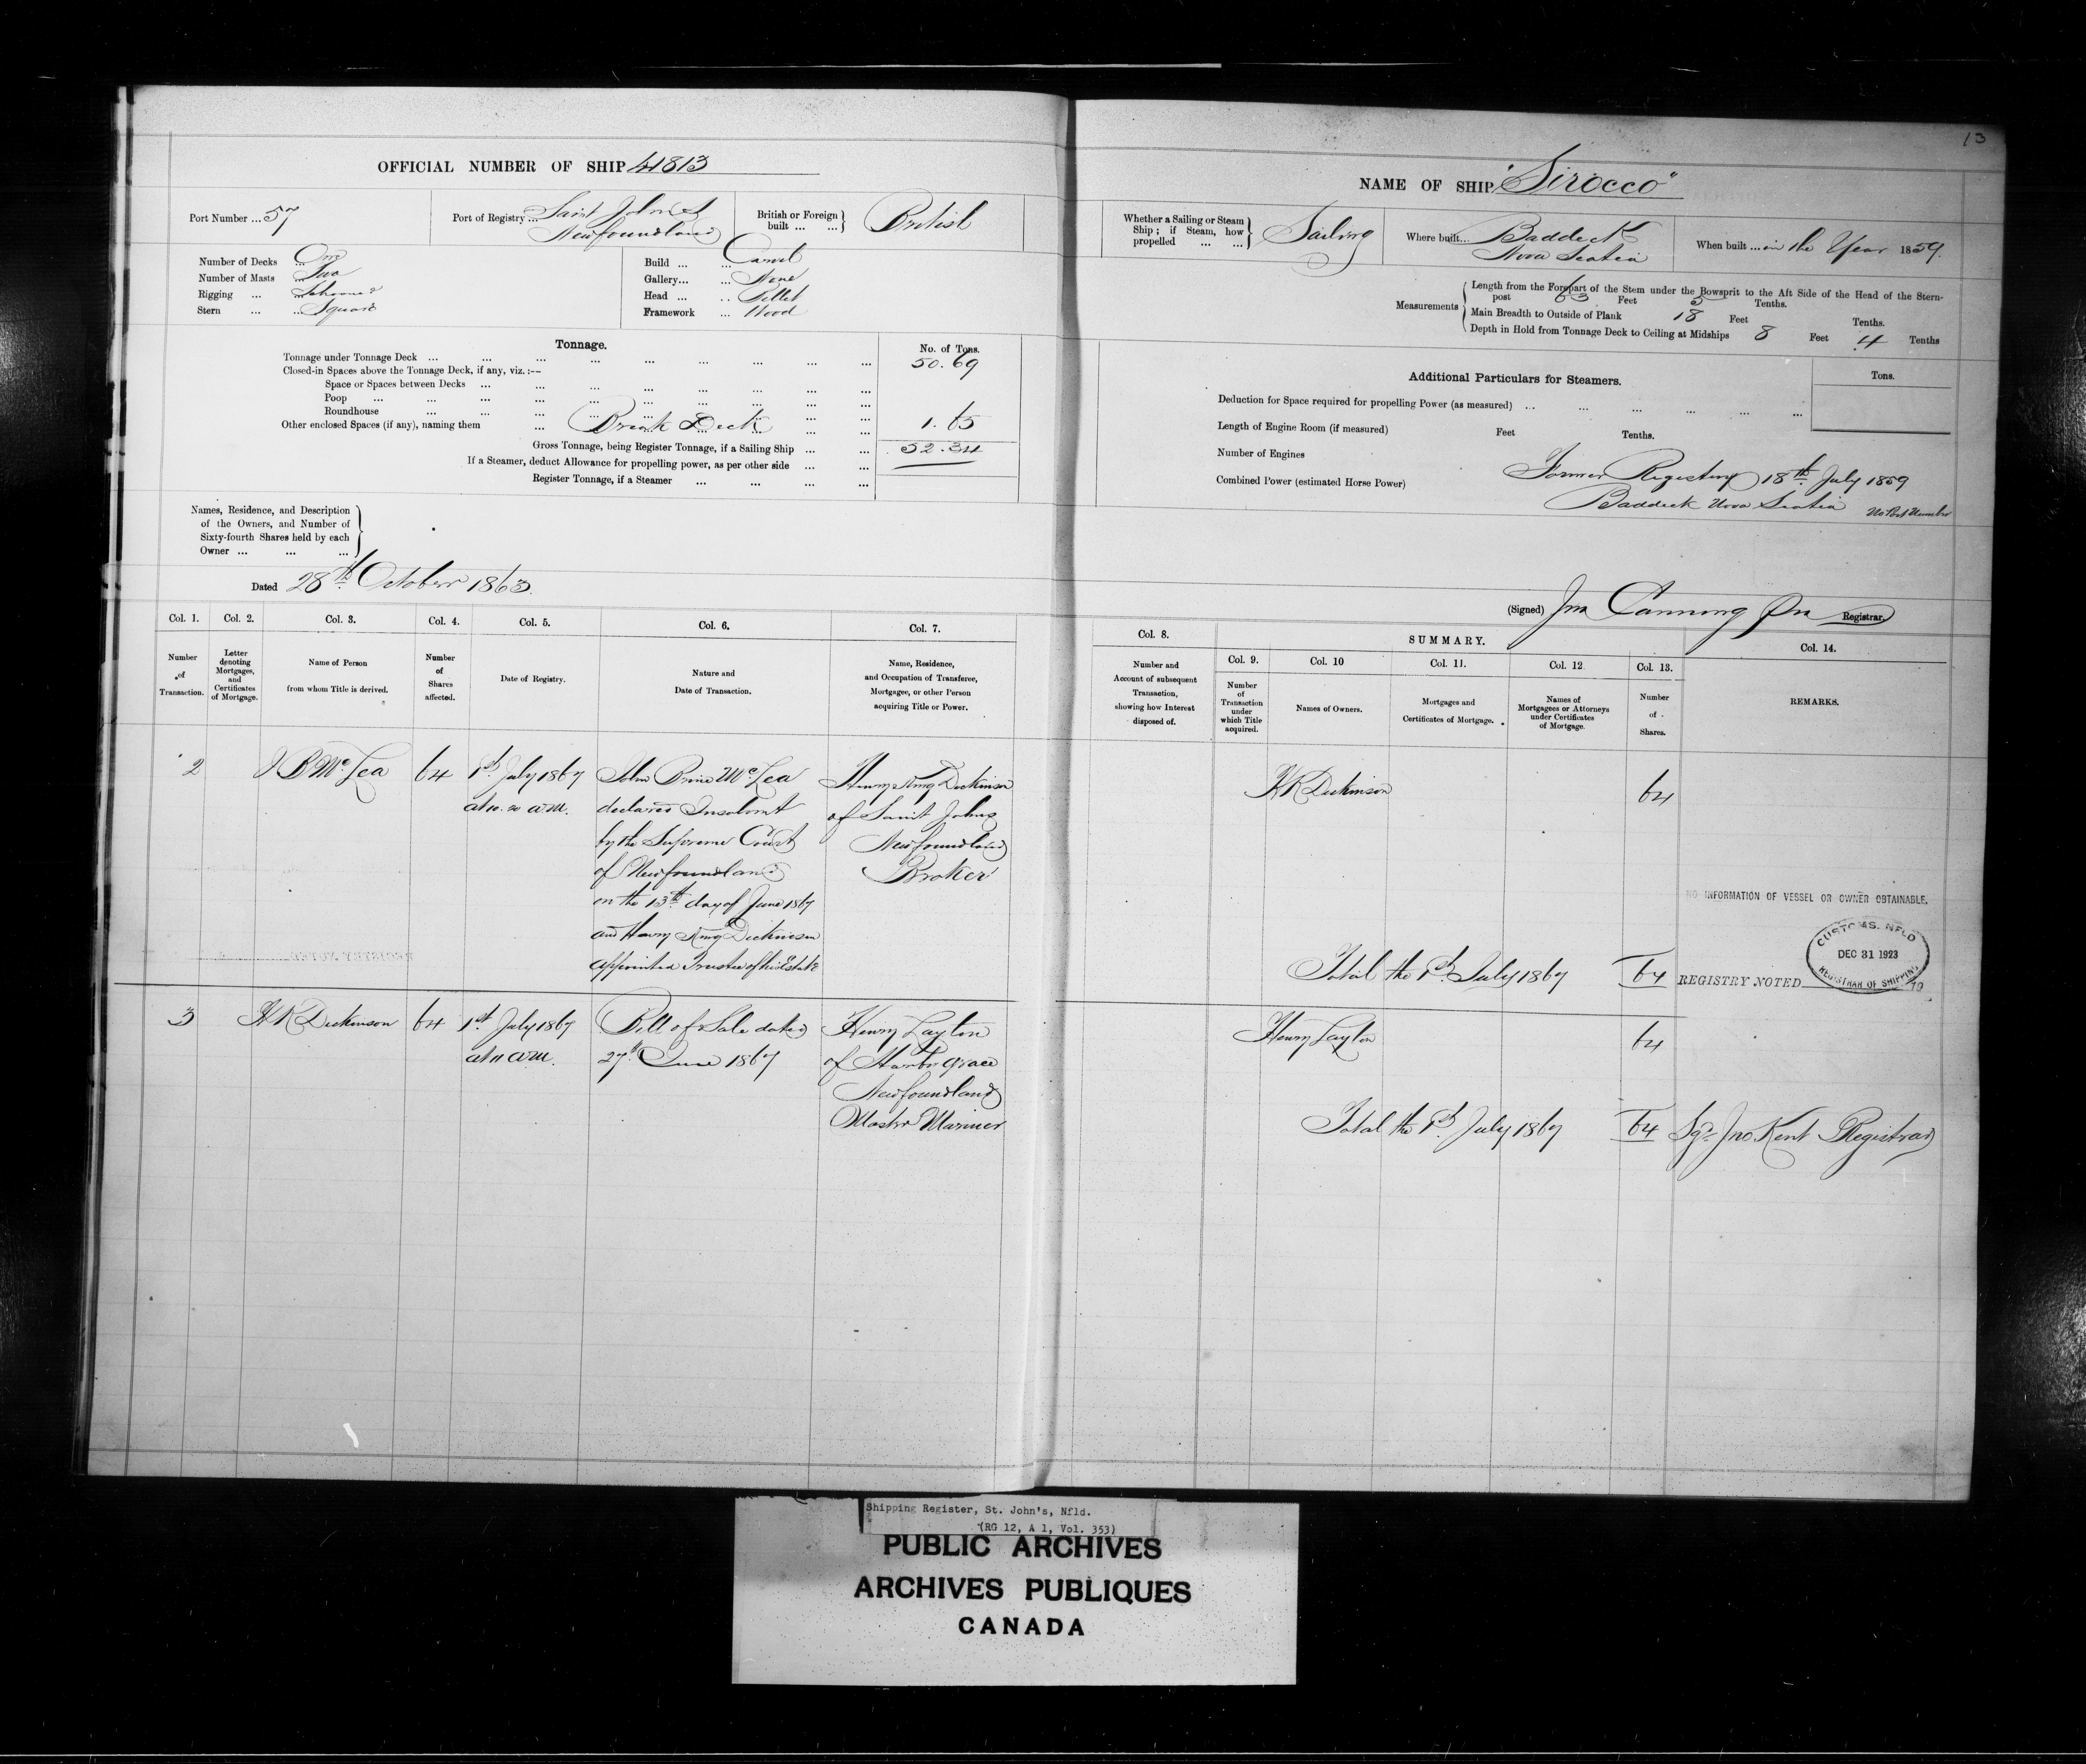 13
OFFICIAL NUMBER OF SHIP 41813
Port Number ... 57
Port of Registry ... Saint John's
Newfoundland
British or Foreign built ... ... British
Number of Decks ... One
Number of Masts ... Two
Rigging ... ... Schooner
Stern ... ... Square
Build ... ... Carvel
Gallery... ... None
Head ... ... Billet
Framework ... Wood
Tonnage.
No. of Tons.
Tonnage under Tonnage Deck ... ... ... ... ... ... ... ... 50.69
Closed-in Spaces above the Tonnage Deck, if any, viz. :--
Space or Spaces between Decks ... ... ... ... ... ... ... ...
Poop ... ... ... ... ... ... ... ... ...
Roundhouse ... ... ... ... ... ... ... ...
Other enclosed Spaces (if any), naming them ... Break Deck ... ... 1.65
Gross Tonnage, being Register Tonnage, if a Sailing Ship ... ... 52.34
If a Steamer, deduct Allowance for propelling power, as per other side ... ...
Register Tonnage, if a Steamer ... ... ... ...
Names, Residence, and Description
of the Owners, and Number of
Sixty-fourth Shares held by each
Owner ... ... ...
Dated 28th October 1863.
NAME OF SHIP "Sirocco"
Whether a Sailing or Steam
Ship ; if Steam, how
propelled ... ... Sailing
Where built... Baddeck
Nova Scotia
When built ... in the Year 1859.
Measurements
Length from the Forepart of the Stem under the Bowsprit to the Aft Side of the Head of the Stern-
post 63 Feet 5 Tenths.
Main Breadth to Outside of Plank 18 Feet Tenths.
Depth in Hold from Tonnage Deck to Ceiling at Midships 8 Feet 4 Tenths
Additional Particulars for Steamers.
Tons.
Deduction for Space required for propelling Power (as measured) ... ... ... ... ... ...
Length of Engine Room (if measured) Feet Tenths.
Number of Engines
Combined Power (estimated Horse Power)
Former Registry 18th July 1859
Baddeck Nova Scotia No Port Number
(Signed) Jno Canning Registrar.
Col. 1.
Number
of
Transaction.
Col. 2.
Letter
denoting
Mortgages,
and
Certificates
of Mortgage.
Col. 3.
Name of Person
from whom Title is derived.
Col. 4.
Number
of
Shares
affected.
Col. 5.
Date of Registry.
Col. 6.
Nature and
Date of Transaction.
Col. 7.
Name, Residence,
and Occupation of Transferee,
Mortgagee, or other Person
acquiring Title or Power.
Col. 8.
Number and
Account of subsequent
Transaction,
showing how Interest
disposed of.
SUMMARY.
Col. 9.
Number
of
Transaction
under
which Title
acquired.
Col. 10
Names of Owners.
Col. 11.
Mortgages and
Certificates of Mortgage.
Col. 12
Names of
Mortgagees or Attorneys
under Certificates
of Mortgage.
Col. 13.
Number
of
Shares.
Col. 14.
REMARKS.
2
J B McLea
64
1st July 1867
at 10.20 a.m.
John Brine McLea
declared Insolvent
by the Supreme Court
of Newfoundland
on the 13th day of June 1867
and Henry King Dickinson
appointed Trustee of his Estate
Henry King Dickinson
of Saint Johns
Newfoundland
Broker
H K Dickinson
64
Total the 1st July 1867
64
NO INFORMATION OF VESSEL OR OWNER OBTAINABLE.
REGISTRY NOTED
CUSTOMS. NFLD
DEC 31 1923
REGISTRAR OF SHIPPING
19
3
H K Dickinson
64
1st July 1867
at 11 a.m.
Bill of Sale dated
27th June 1867
Henry Layton
of Harbor Grace
Newfoundland
Master Mariner
Henry Layton
64
Total the 1st July 1867
64
Sgd Jno. Kent Registrar
Shipping Register, St. John's, Nfld.
(RG 12, A 1, Vol. 353)
PUBLIC ARCHIVES
ARCHIVES PUBLIQUES
CANADA